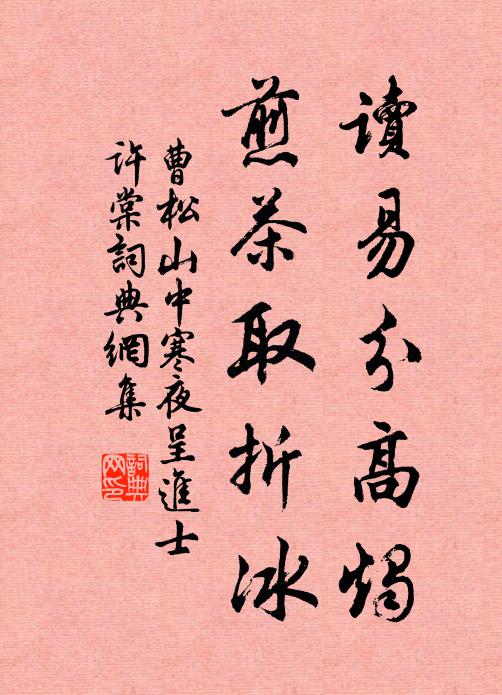 讀易分高燭
煎茶取折冰
曹松山中寒夜呈進士
許棠詞典網集
詞典網印